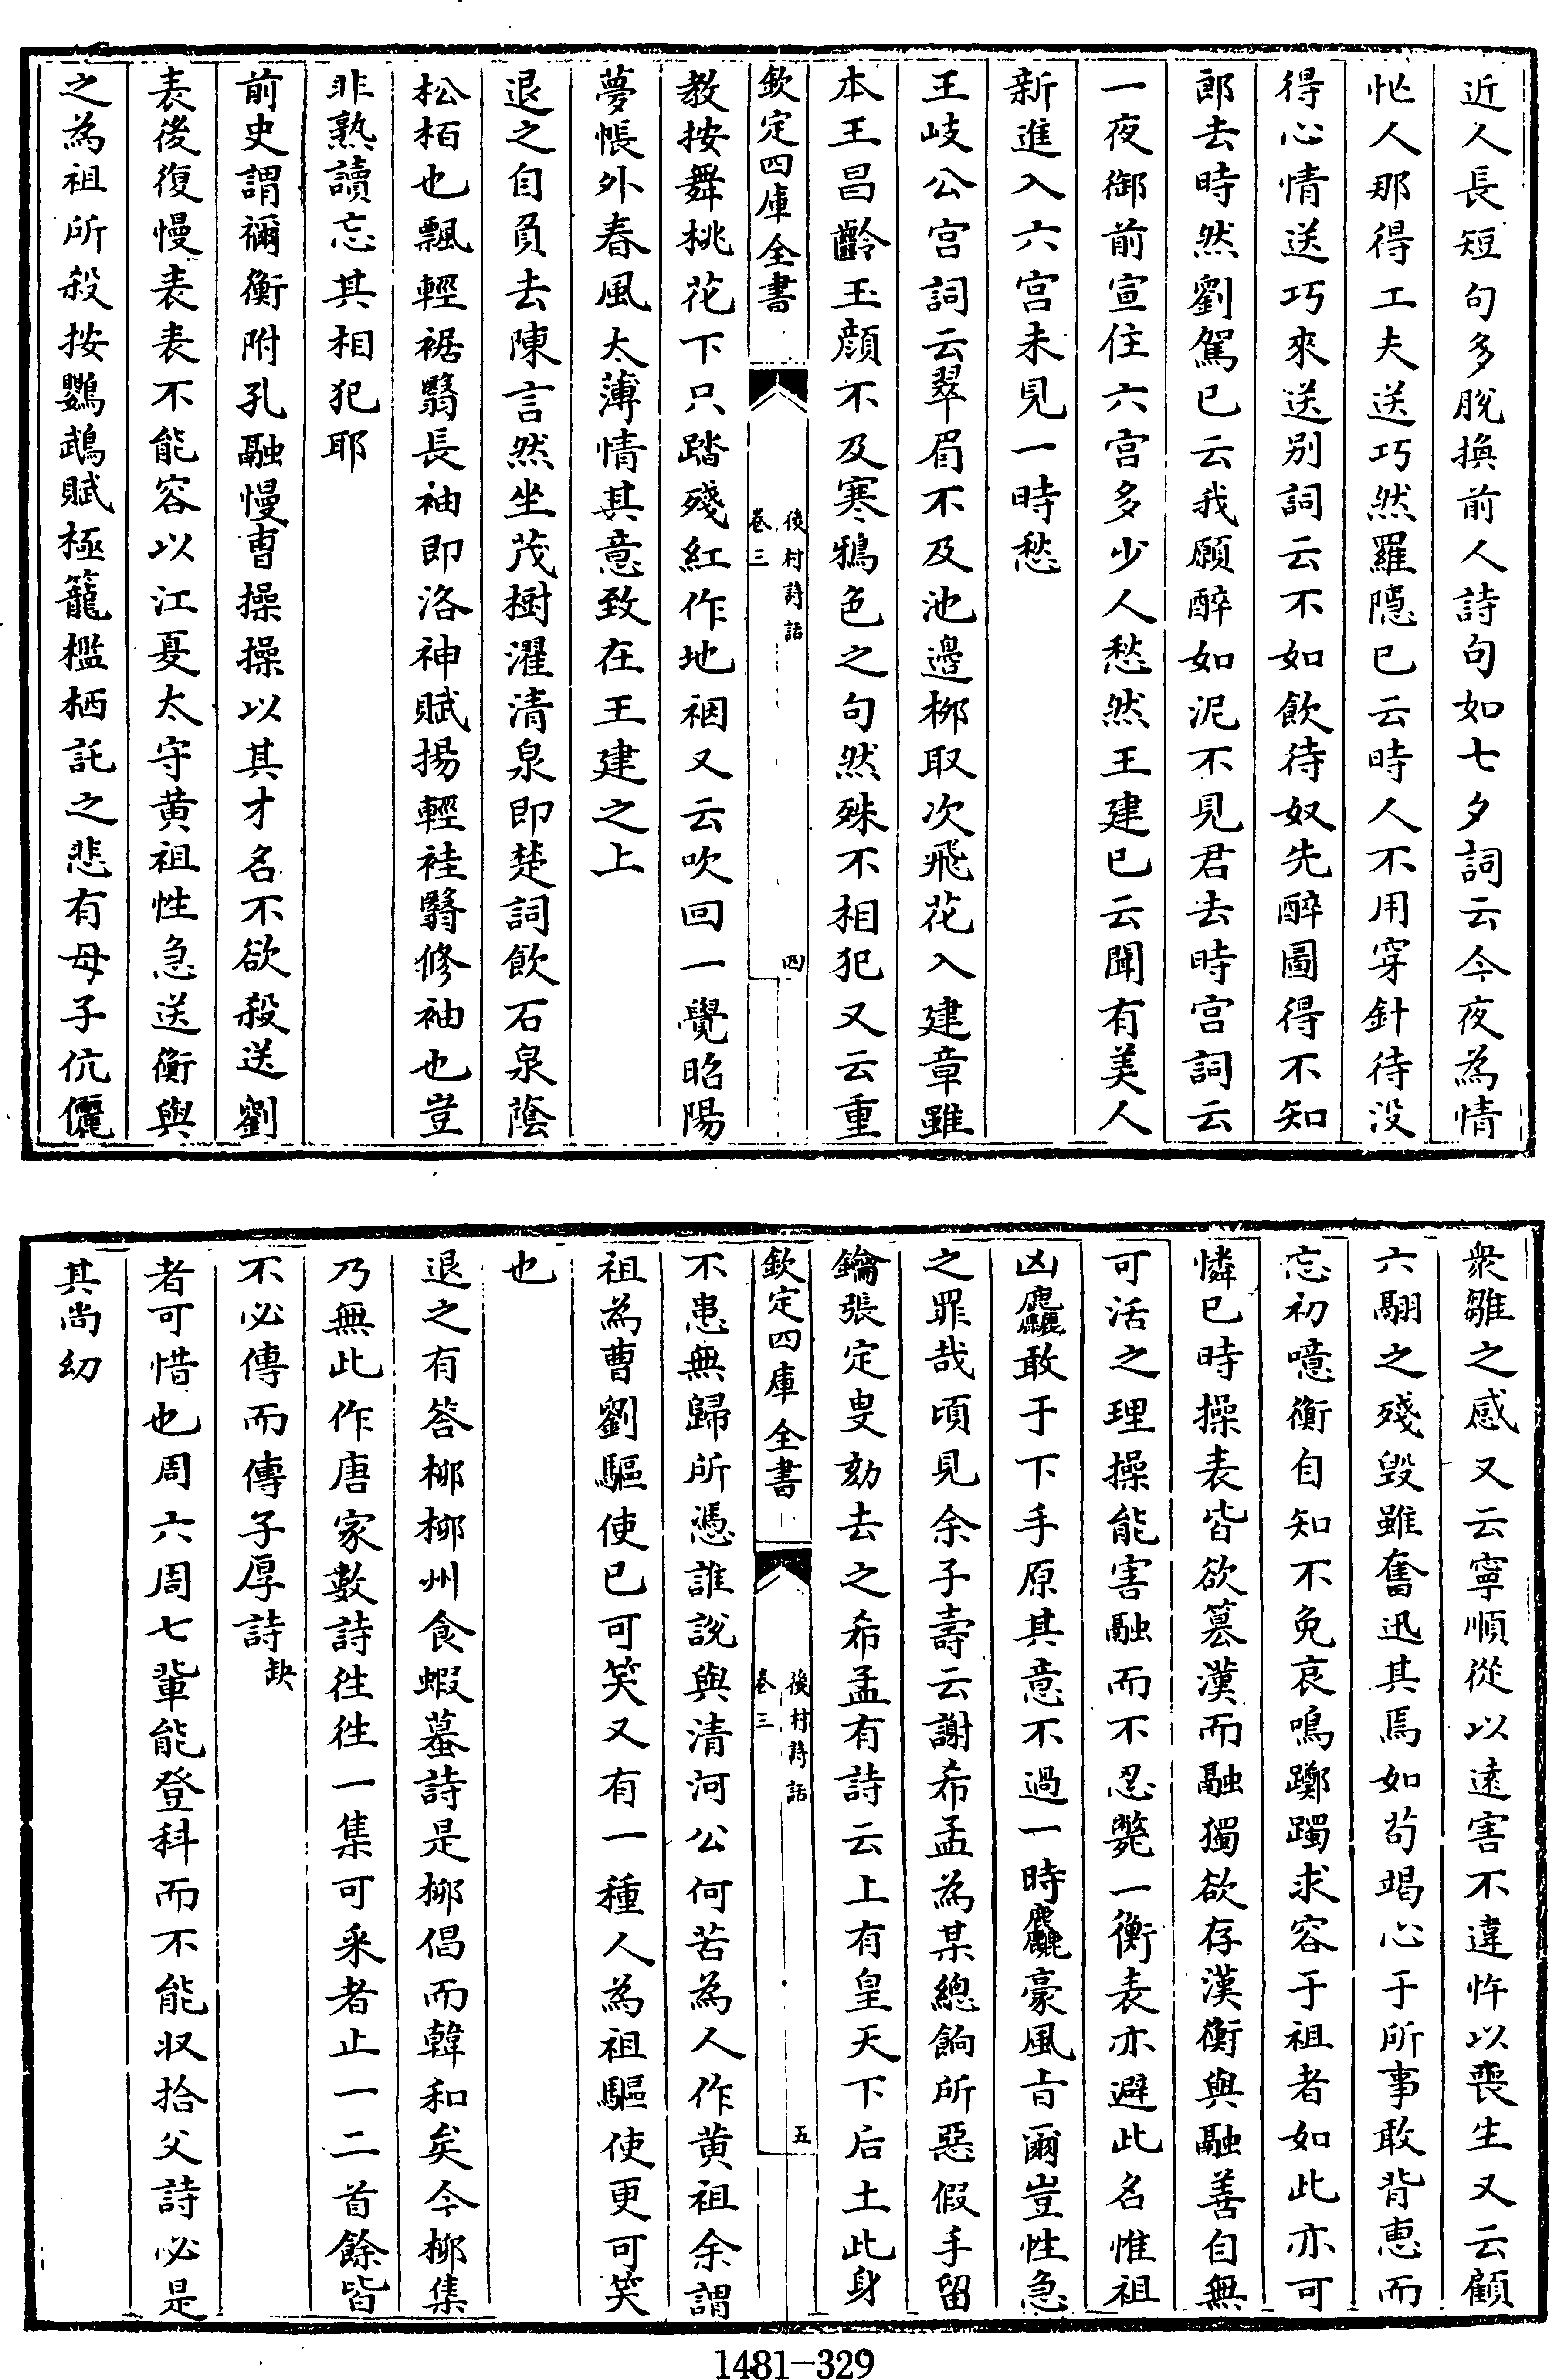 近人長短句多脫換前人詩句如七夕詞云今夜為情
忙人那得工夫送巧然羅隱已云時人不用穿針待没
得心情送巧來送別詞云不如飲待奴先醉圖得不知
郎去時然劉駕已云我願醉如泥不見君去時宫詞云
一夜御前宣住六宫多少人愁然王建已云聞有美人
新進入六宫未見一時愁
王岐公宫詞云翠眉不及池邊柳取次飛花入建章雖
本王昌齡玉顔不及寒鴉色之句然殊不相犯又云重
欽定四庫全書
後村詩話
卷三
四
教按舞桃花下只踏殘紅作地裀又云吹回一覺昭陽
夢帳外春風太薄情其意致在王建之上
退之自負去陳言然坐茂樹濯清泉即楚詞飲石泉蔭
松栢也飄輕裾翳長袖即洛神賦揚輕袿翳修袖也豈
非熟讀忘其相犯耶
前史謂禰衡附孔融慢曹操操以其才名不欲殺送劉
表後復慢表表不能容以江夏太守黄祖性急送衡與
之為祖所殺按鸚鵡賦極籠檻栖託之悲有母子伉儷
衆雛之感又云寧順從以逺害不違忤以喪生又云顧
六翮之殘毁雖奮迅其焉如茍竭心于所事敢背恵而
忘初噫衡自知不免哀鳴躑躅求容于祖者如此亦可
憐已時操表皆欲簒漢而融獨欲存漢衡與融善自無
可活之理操能害融而不忍斃一衡表亦避此名惟祖
凶麤敢于下手原其意不過一時麤豪風㫖爾豈性急
之罪哉頃見余子壽云謝希孟為某總餉所惡假手留
鑰張定叟劾去之希孟有詩云上有皇天下后土此身
欽定四庫全書
後村詩話
卷三
五
不患無歸所憑誰說與清河公何苦為人作黄祖余謂
祖為曹劉驅使已可笑又有一種人為祖驅使更可笑
也
退之有答柳柳州食蝦蟇詩是柳倡而韓和矣今柳集
乃無此作唐家數詩徃徃一集可采者止一二首餘皆
不必傳而傳子厚詩缺
者可惜也周六周七輩能登科而不能収拾父詩必是
其尚幼
1481-329